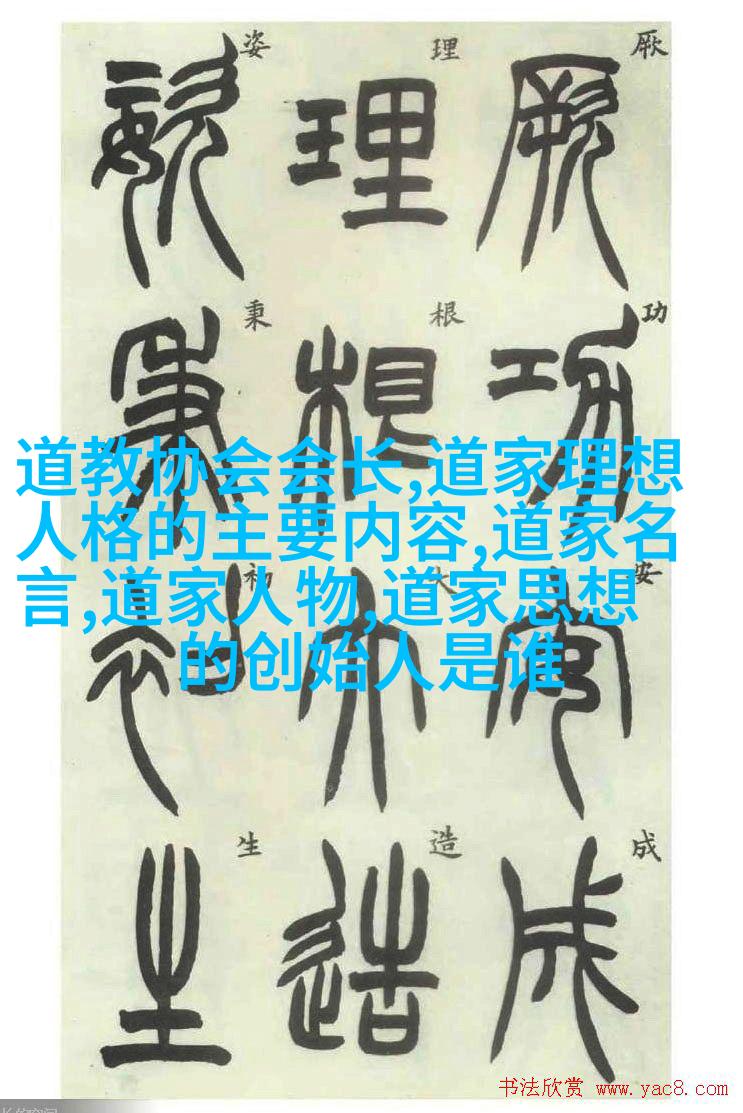 厥功安成
理根大造
姿秉初生
厥
功
安
成
理
根
大
造
姿
秉
初
生
道教协会会长,道家理想
人格的主要内容,道家名
言,道家人物,道家思想
的创始人是谁
书法欣赏 www.yac8.com